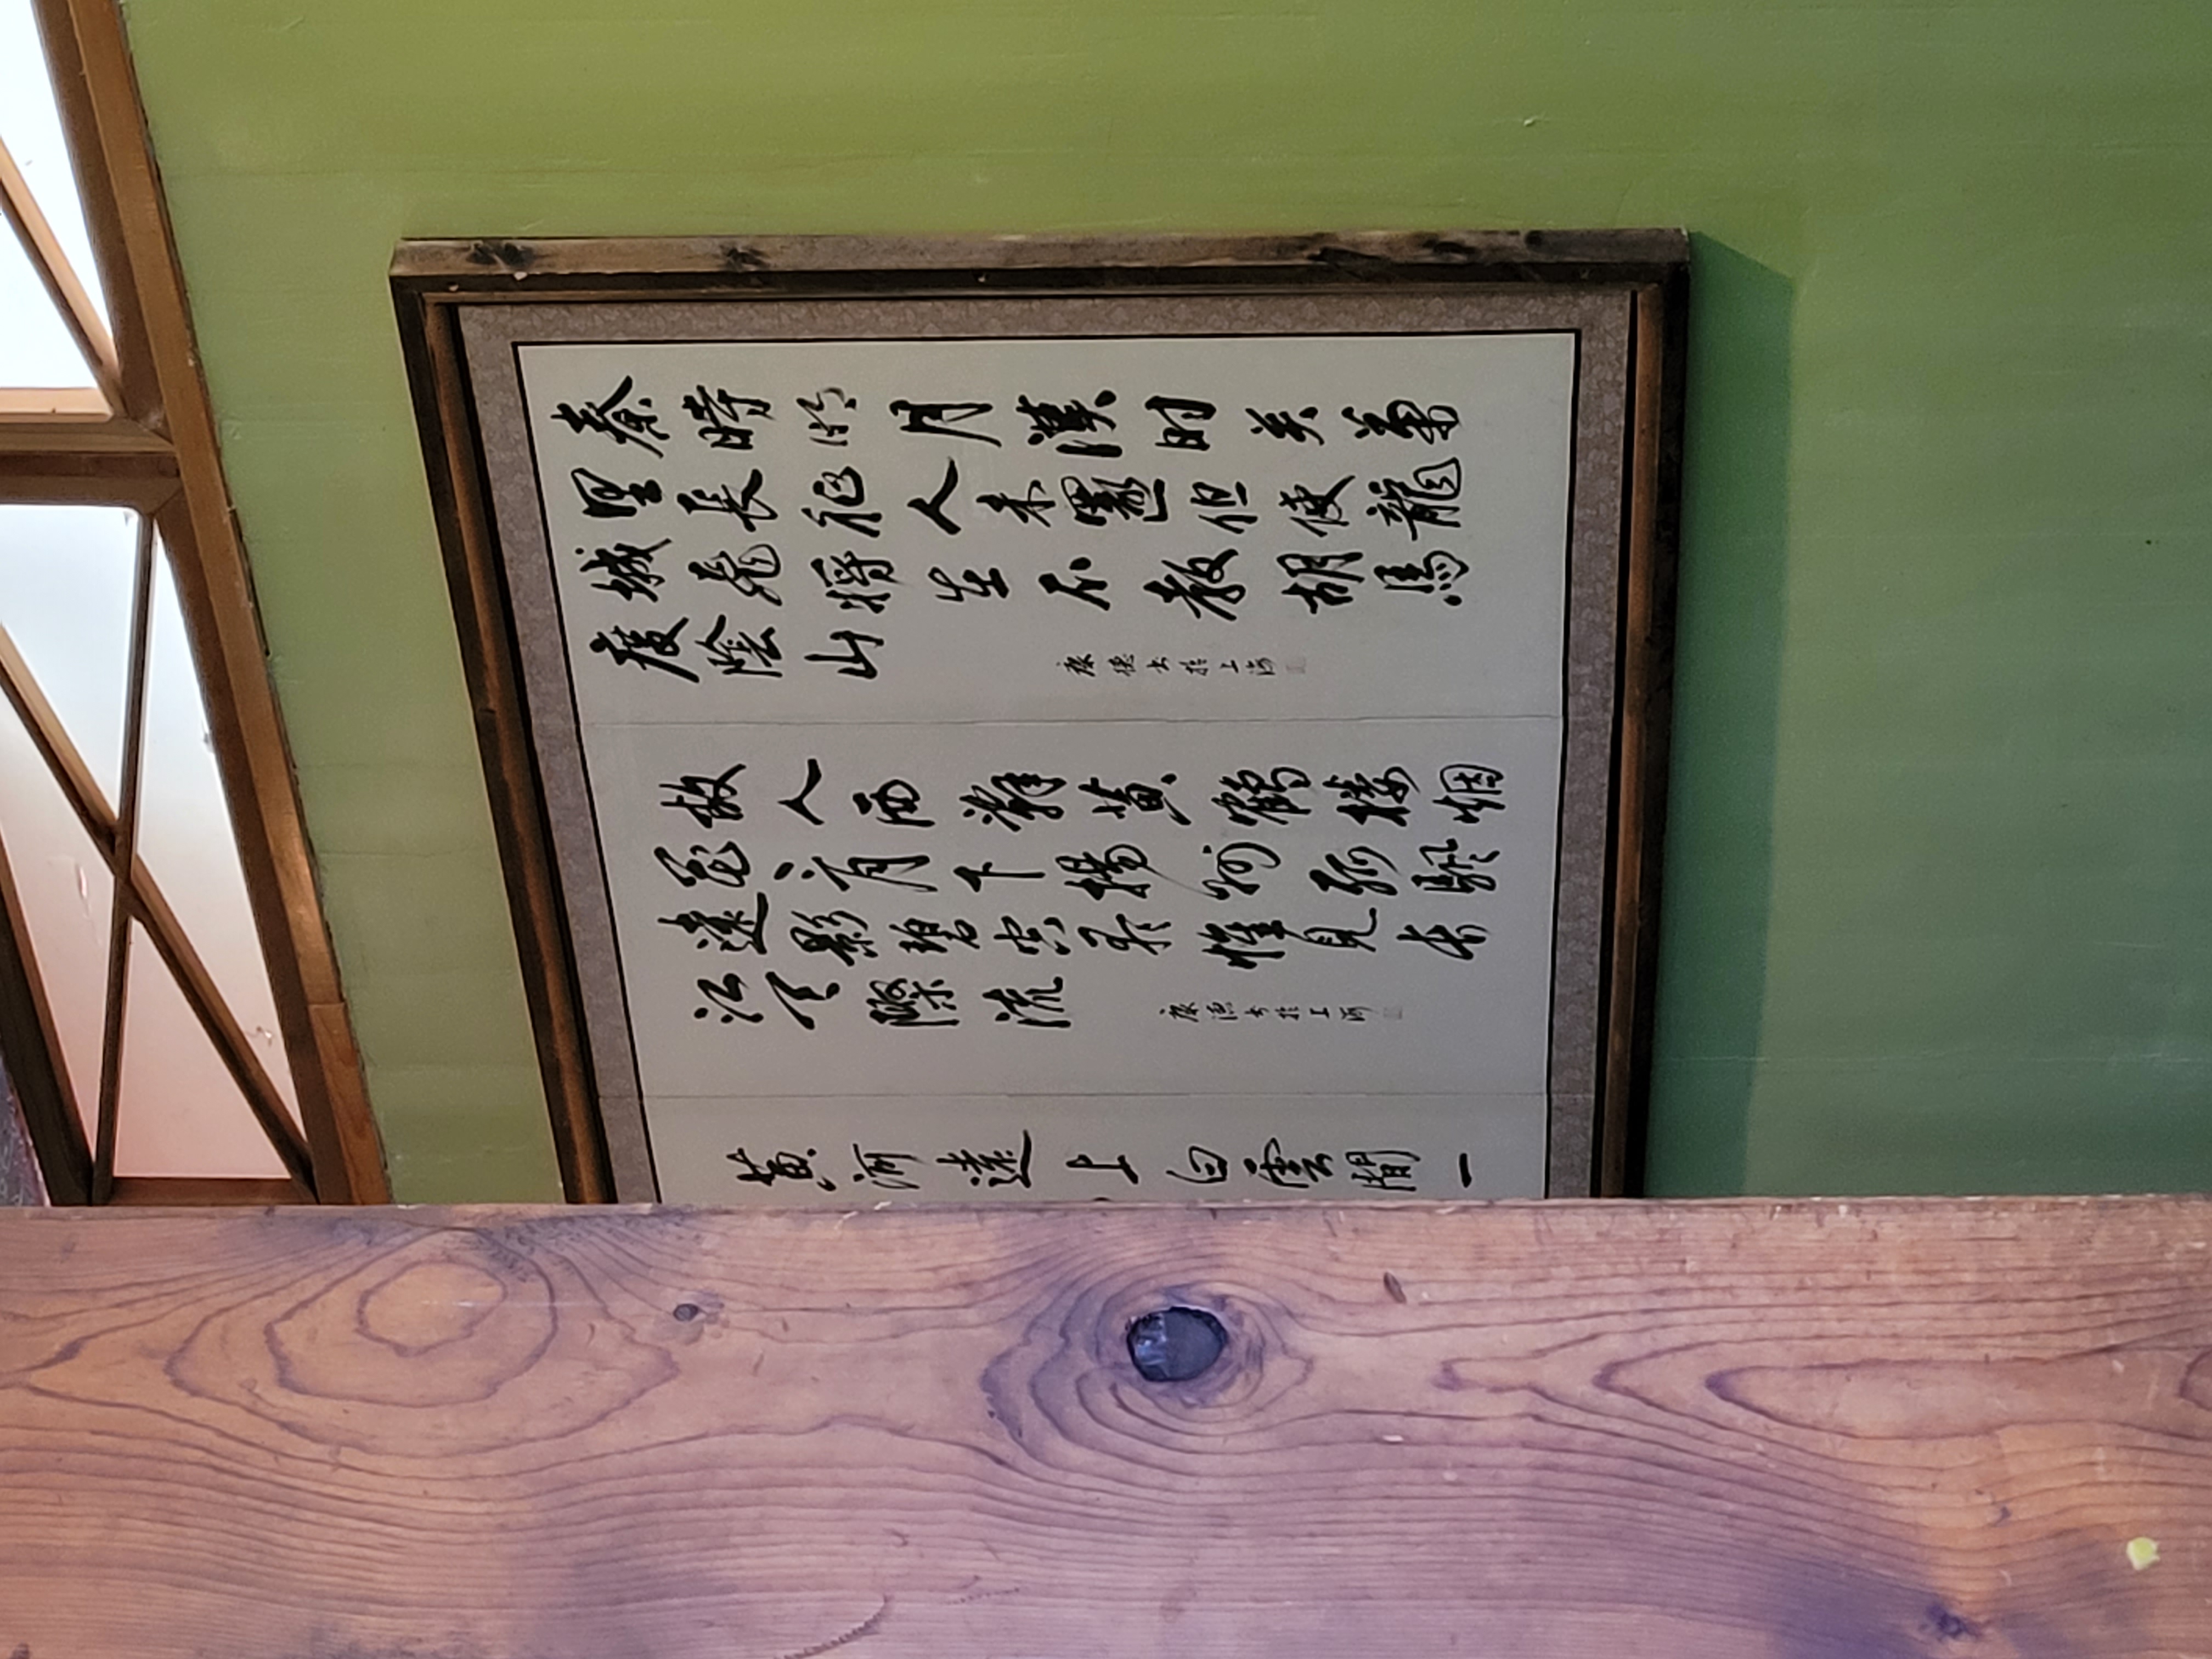 秦時明月漢时关萬
里長征人未還但使龍
城飛將在不教胡馬
度陰山
康德书於上海
故人西辭黄鶴楼烟
花三月下揚州孤颿
遠影碧空尽惟見长
江天際流
康德书於上海
黄河遠上白雲間一